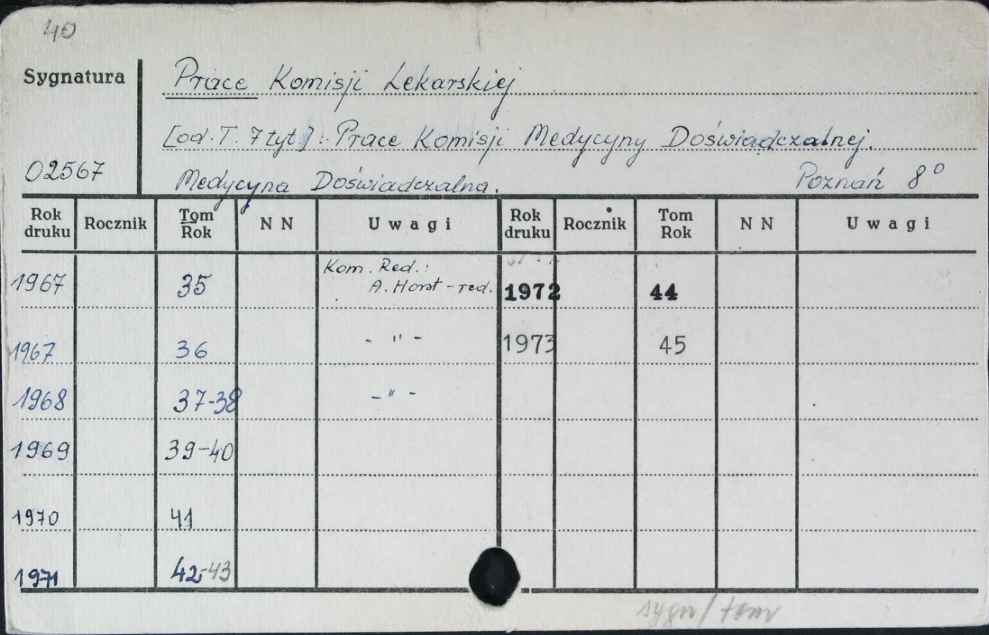 40
Sygnatura Prace Komisji Lekarskiej
[od. T. 7 tyt.]: Prace Komisji Medycyny Doświadczalnej.
02567 Medycyna Doświadczalna. Poznań 8°
Rok druku Rocznik Tom Rok N N Uwagi Rok druku Rocznik Tom Rok N N Uwagi
1967 35 Kom. Red.: A. Horst - red. 1972 44
1967 36 - " - 1973 45
1968 37-38 - " -
1969 39-40
1970 41
1971 42-43
sygn/tom